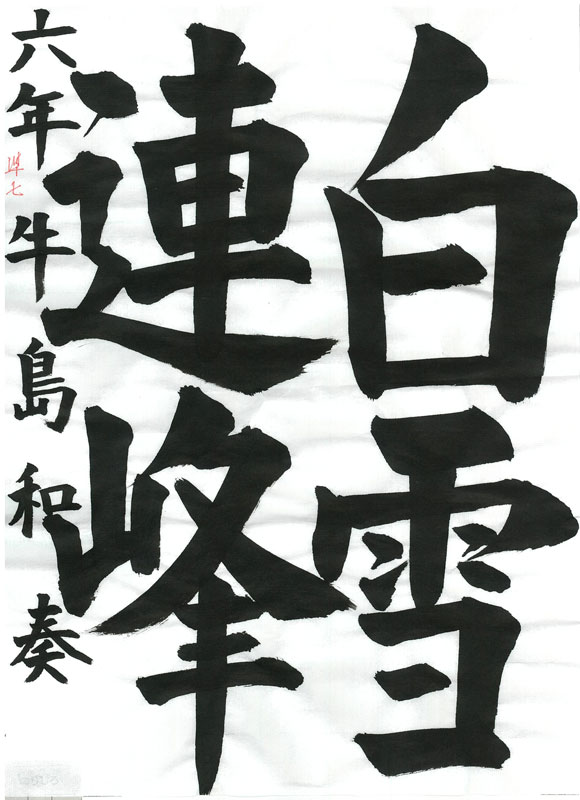 白雪
連峰
六年牛島和奏
準七